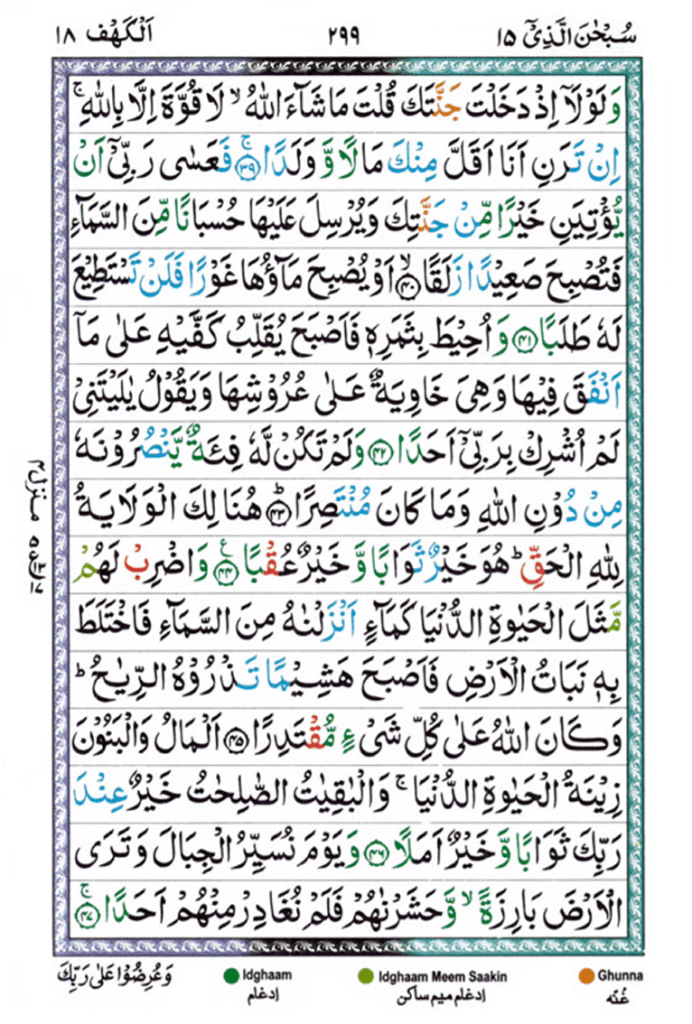 سُبْحٰنَ الَّذِیْۤ ١٥ ٢٩٩ اَلْكَهْف ١٨
وَلَوْلَاۤ اِذْ دَخَلْتَ جَنَّتَكَ قُلْتَ مَا شَآءَ اللّٰهُ ۙ لَا قُوَّةَ اِلَّا بِاللّٰهِ ۚ
اِنْ تَرَنِ اَنَا اَقَلَّ مِنْكَ مَالًا وَّ وَلَدًا ۚ‏﴿٣٩﴾ فَعَسٰی رَبِّیْۤ اَنْ
یُّؤْتِیَنِ خَیْرًا مِّنْ جَنَّتِكَ وَیُرْسِلَ عَلَیْهَا حُسْبَانًا مِّنَ السَّمَآءِ
فَتُصْبِحَ صَعِیْدًا زَلَقًا ۙ‏﴿٤٠﴾ اَوْ یُصْبِحَ مَآؤُهَا غَوْرًا فَلَنْ تَسْتَطِیْعَ
لَهٗ طَلَبًا ﴿٤١﴾ وَاُحِیْطَ بِثَمَرِهٖ فَاَصْبَحَ یُقَلِّبُ كَفَّیْهِ عَلٰی مَاۤ
اَنْفَقَ فِیْهَا وَهِیَ خَاوِیَةٌ عَلٰی عُرُوْشِهَا وَیَقُوْلُ یٰلَیْتَنِیْ
لَمْ اُشْرِكْ بِرَبِّیْۤ اَحَدًا ﴿٤٢﴾ وَلَمْ تَكُنْ لَّهٗ فِئَةٌ یَّنْصُرُوْنَهٗ
مِنْ دُوْنِ اللّٰهِ وَمَا كَانَ مُنْتَصِرًا ؕ‏﴿٤٣﴾ هُنَالِكَ الْوَلَایَةُ
لِلّٰهِ الْحَقِّ ؕ هُوَ خَیْرٌ ثَوَابًا وَّ خَیْرٌ عُقْبًا ࣖ‏﴿٤٤﴾ وَاضْرِبْ لَهُمْ
مَّثَلَ الْحَیٰوةِ الدُّنْیَا كَمَآءٍ اَنْزَلْنٰهُ مِنَ السَّمَآءِ فَاخْتَلَطَ
بِهٖ نَبَاتُ الْاَرْضِ فَاَصْبَحَ هَشِیْمًا تَذْرُوْهُ الرِّیٰحُ ؕ
وَكَانَ اللّٰهُ عَلٰی كُلِّ شَیْءٍ مُّقْتَدِرًا ﴿٤٥﴾ اَلْمَالُ وَالْبَنُوْنَ
زِیْنَةُ الْحَیٰوةِ الدُّنْیَا ۚ وَالْبٰقِیٰتُ الصّٰلِحٰتُ خَیْرٌ عِنْدَ
رَبِّكَ ثَوَابًا وَّ خَیْرٌ اَمَلًا ﴿٤٦﴾ وَیَوْمَ نُسَیِّرُ الْجِبَالَ وَتَرَی
الْاَرْضَ بَارِزَةً ۙ وَّحَشَرْنٰهُمْ فَلَمْ نُغَادِرْ مِنْهُمْ اَحَدًا ۚ‏﴿٤٧﴾
وَعُرِضُوْا عَلٰی رَبِّكَ
Idghaam
ادغام
Idghaam Meem Saakin
ادغام میم ساکن
Ghunna
غنّہ